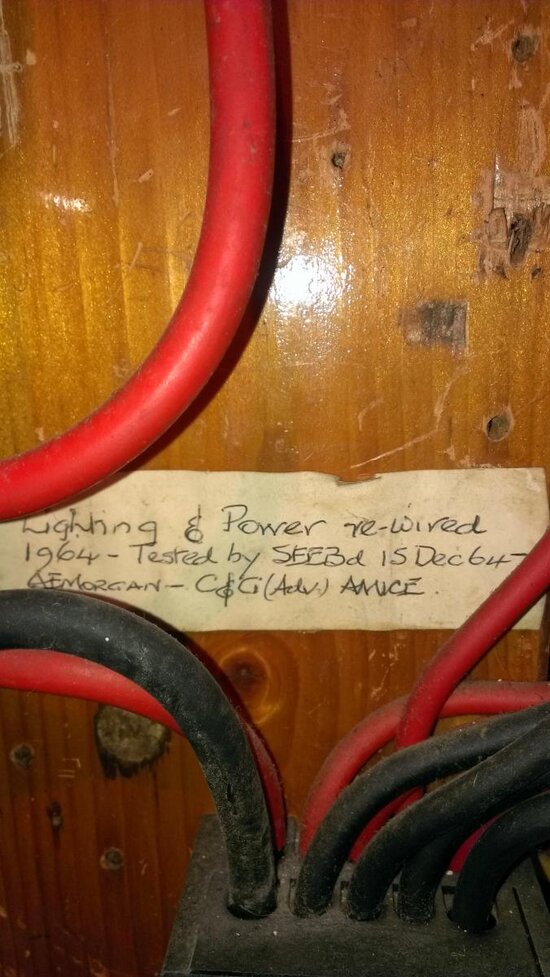 Lighting & Power re-wired
1964 - Tested by SEEBd 15 Dec 64 -
AEMORGAN - C&G (Adv.) AMICE.